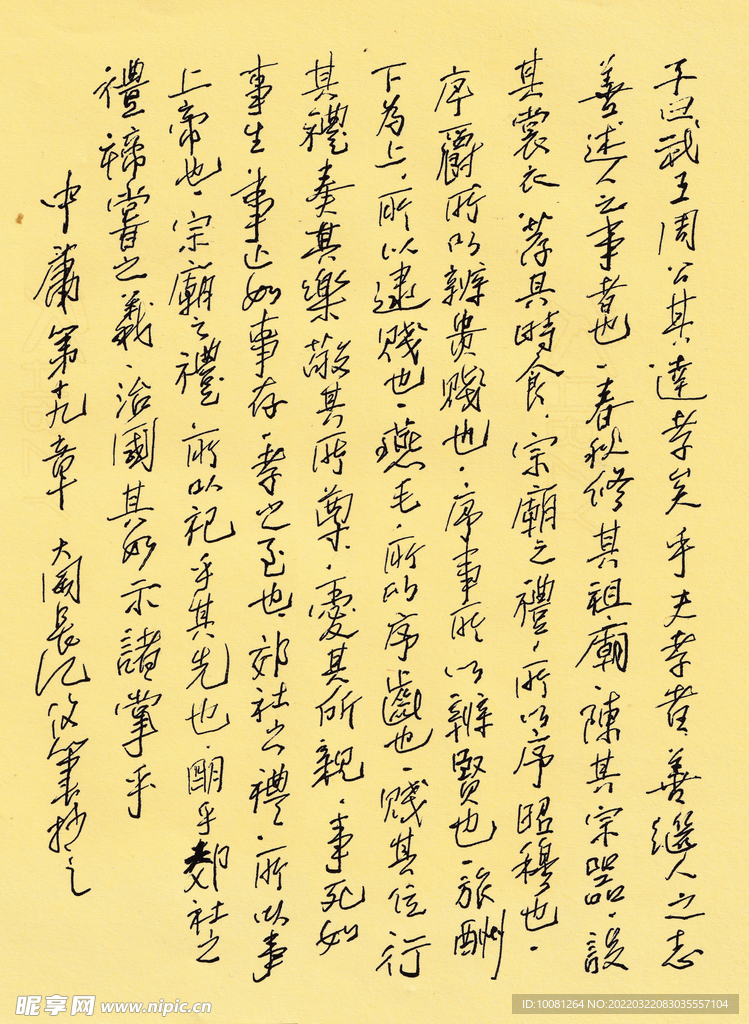 子曰武王周公其達孝矣乎夫孝者善繼人之志
善述人之事者也、春秋修其祖廟陳其宗器、設
其裳衣薦其時食、宗廟之禮、所以序昭穆也、
序爵所以辨貴賤也、序事所以辨賢也、旅酬
下為上、所以逮賤也、燕毛、所以序齒也、賤其位行
其禮奏其樂敬其所尊、愛其所親、事死如
事生事亡如事存、孝之至也、郊社之禮、所以事
上帝也、宗廟之禮所以祀乎其先也、明乎郊社之
禮禘嘗之義、治國其如示諸掌乎
中庸第十九章 筆抄之
昵享网 www.nipic.cn
ID:10081264 NO:20220322083035557104